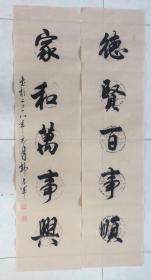 德賢百事順
家和萬事興